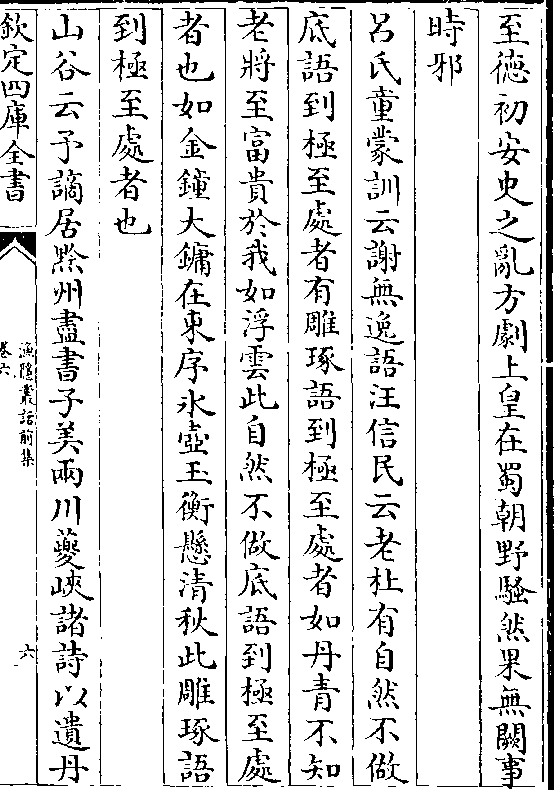 至德初安史之亂方劇上皇在蜀朝野騷然果無闕事
時邪
呂氏童蒙訓云謝無逸語汪信民云老杜有自然不做
底語到極至處者有雕琢語到極至處者如丹青不知
老將至富貴於我如浮雲此自然不做底語到極至處
者也如金鐘大鏞在東序氷壺玉衡懸清秋此雕琢語
到極至處者也
山谷云予謫居黔州盡書子美兩川夔峽諸詩以遺丹
欽定四庫全書
漁隱叢話前集
卷六
六